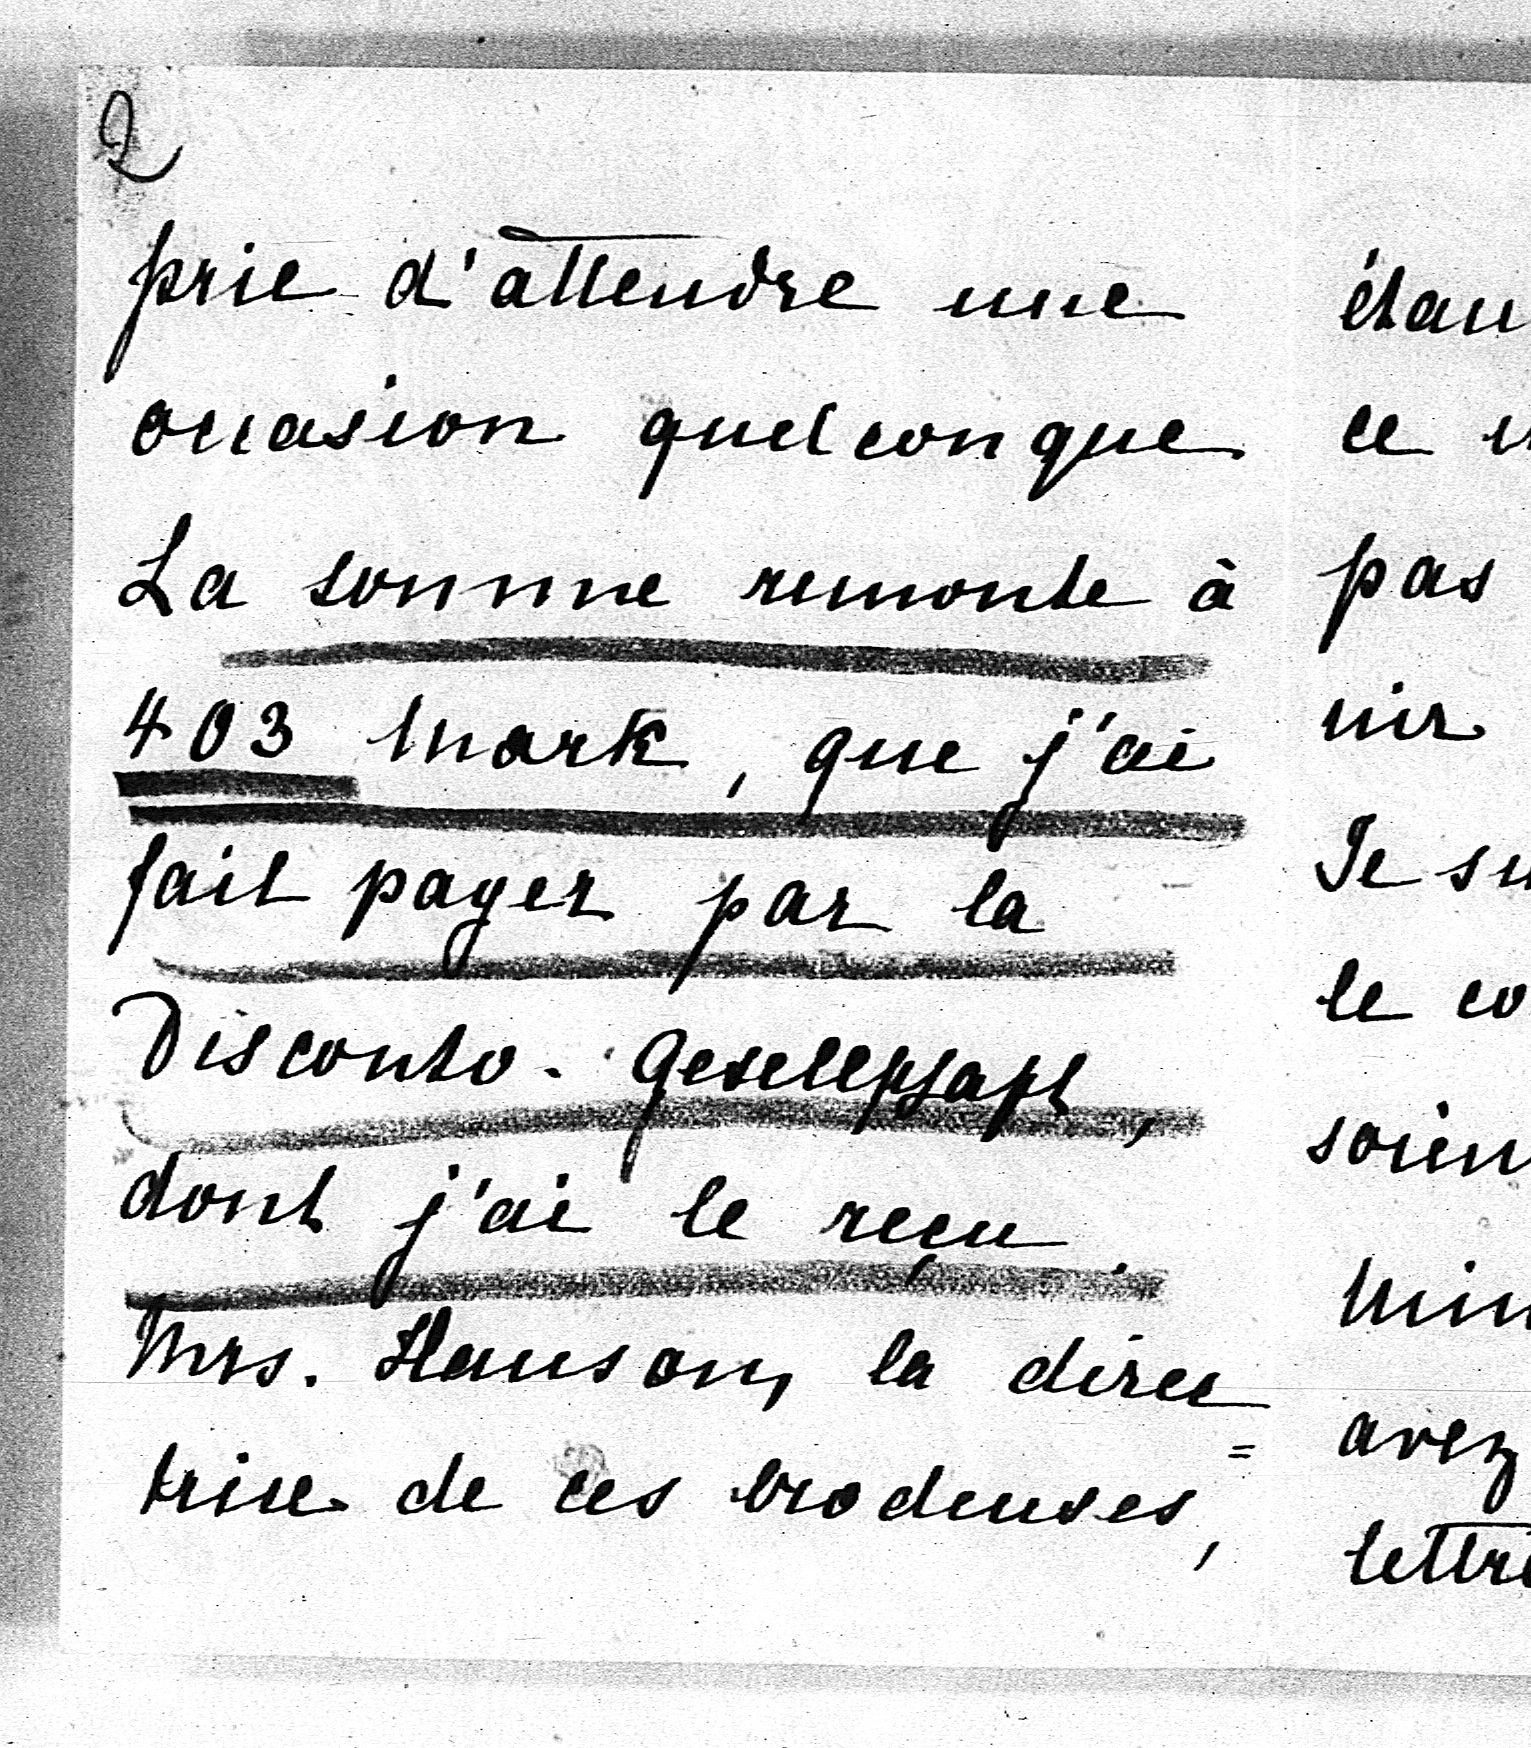 2
prie d'attendre une
occasion quelconque
La somme remonte à
403 Mark, que j'ai
fait payer par la
Disconto-Gesellschaft,
dont j'ai le reçu.
Mrs. Hanson, la direc
=
trise de ces brodeuses,
étan
ce
pas
nir
Je su
le co
soien
Min
avez
lettre